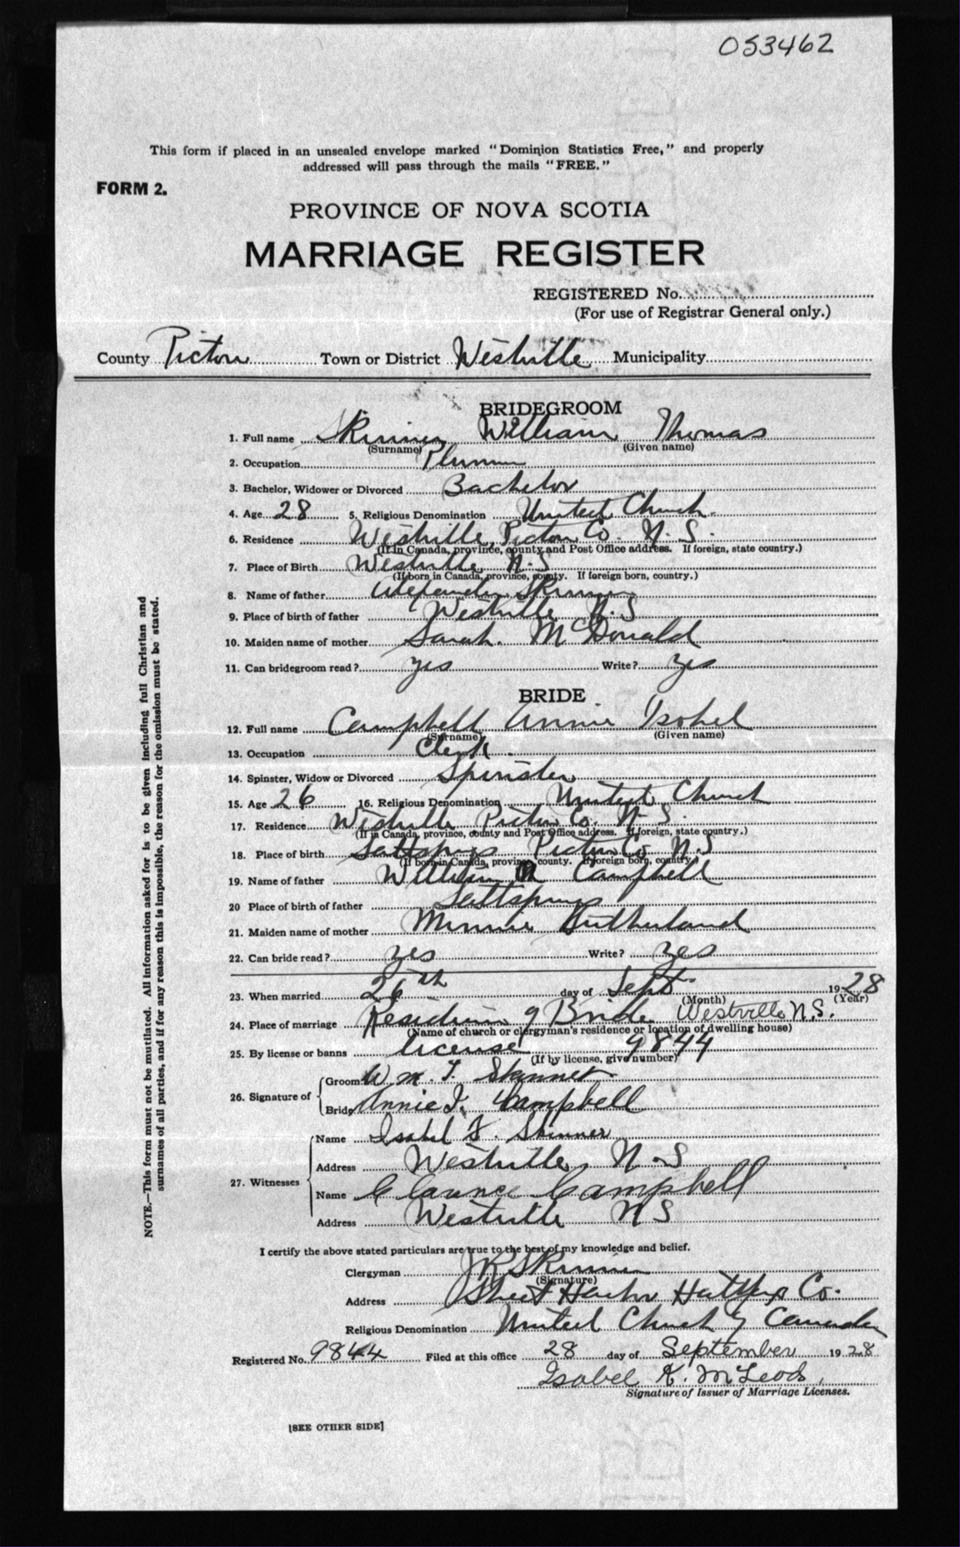 053462
This form if placed in an unsealed envelope marked "Dominion Statistics Free," and properly
addressed will pass through the mails "FREE."
FORM 2.
PROVINCE OF NOVA SCOTIA
MARRIAGE REGISTER
REGISTERED No.
(For use of Registrar General only.)
County Pictou Town or District Westville Municipality
BRIDEGROOM
1. Full name Skinner William Thomas
(Surname) (Given name)
2. Occupation
3. Bachelor, Widower or Divorced Bachelor
4. Age 28 5. Religious Denomination United Church.
6. Residence Westville, Pictou Co. N. S.
(If in Canada, province, county and Post Office address. If foreign, state country.)
7. Place of Birth Westville N.S
(If born in Canada, province, county. If foreign born, country.)
8. Name of father Alexander Skinner
9. Place of birth of father Westville N.S
10. Maiden name of mother Sarah. McDonald
11. Can bridegroom read? yes Write? yes
BRIDE
12. Full name Campbell Annie Isobel
(Surname) (Given name)
13. Occupation Clerk
14. Spinster, Widow or Divorced Spinster
15. Age 26 16. Religious Denomination United Church
17. Residence Westville Pictou Co. N. S.
(If in Canada, province, county and Post Office address. If foreign, state country.)
18. Place of birth Saltsprings Pictou Co N.S
(If born in Canada, province, county. If foreign born, country.)
19. Name of father William Campbell
20 Place of birth of father Saltsprings
21. Maiden name of mother Minnie Sutherland
22. Can bride read? yes Write? yes
23. When married 26th day of Sept. 1928
(Month) (Year)
24. Place of marriage Residence of Bride Westville N.S.
(Name of church or clergyman's residence or location of dwelling house)
25. By license or banns license 9844
(If by license, give number)
26. Signature of
Groom Wm. T. Skinner
Bride Annie I. Campbell
27. Witnesses
Name Isabel F. Skinner
Address Westville, N.S
Name Clarence Campbell
Address Westville N S
I certify the above stated particulars are true to the best of my knowledge and belief.
Clergyman J R Skinner
(Signature)
Address Sheet Harbor Halifax Co.
Religious Denomination United Church of Canada
Registered No. 9844 Filed at this office 28 day of September 1928
Isabel K. McLeod.
Signature of Issuer of Marriage Licenses.
[SEE OTHER SIDE]
NOTE.—This form must not be mutilated. All information asked for is to be given including full Christian and
surnames of all parties, and if for any reason this is impossible, the reason for the omission must be stated.